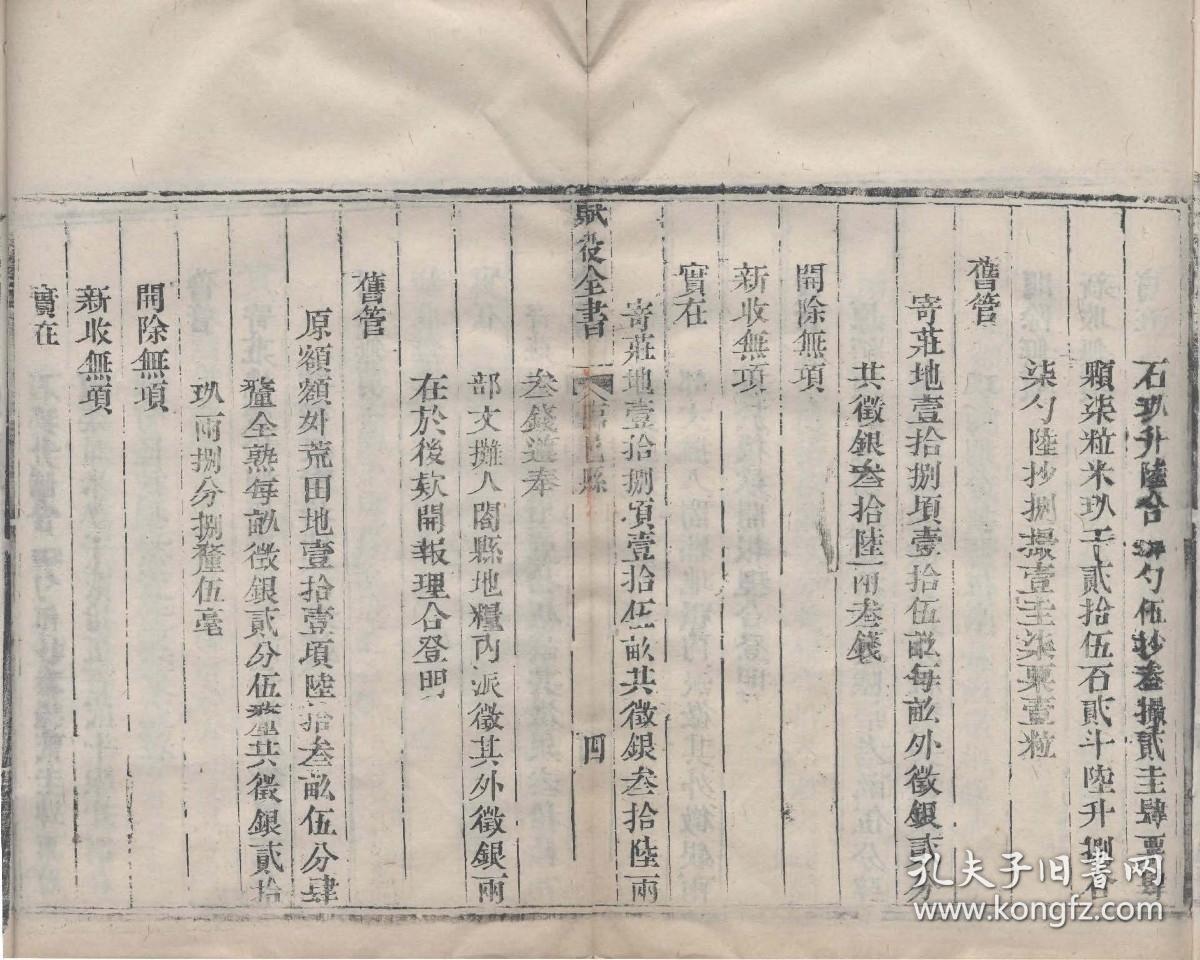 石玖升陸合　勺伍抄叁撮貳圭肆粟肆
顆柒粒米玖千貳拾伍石貳斗陸升捌合
柒勺陸抄捌撮壹圭柒粟壹粒
舊管
寄莊地壹拾捌頃壹拾伍畝每畝外徵銀貳分
共徵銀叁拾陸兩叁錢
開除無項
新收無項
實在
寄莊地壹拾捌項壹拾伍畝共徵銀叁拾陸兩
叁錢遵奉
賦役全書
邑縣
四
部文攤入閤縣地糧內派徵其外徵銀兩
在於後欵開報理合登明
舊管
原額額外荒田地壹拾壹項陸拾叁畝伍分肆
釐全熟每畝徵銀貳分伍釐共徵銀貳拾
玖兩捌分捌釐伍毫
開除無項
新收無項
實在
孔夫子旧书网
www.kongfz.com